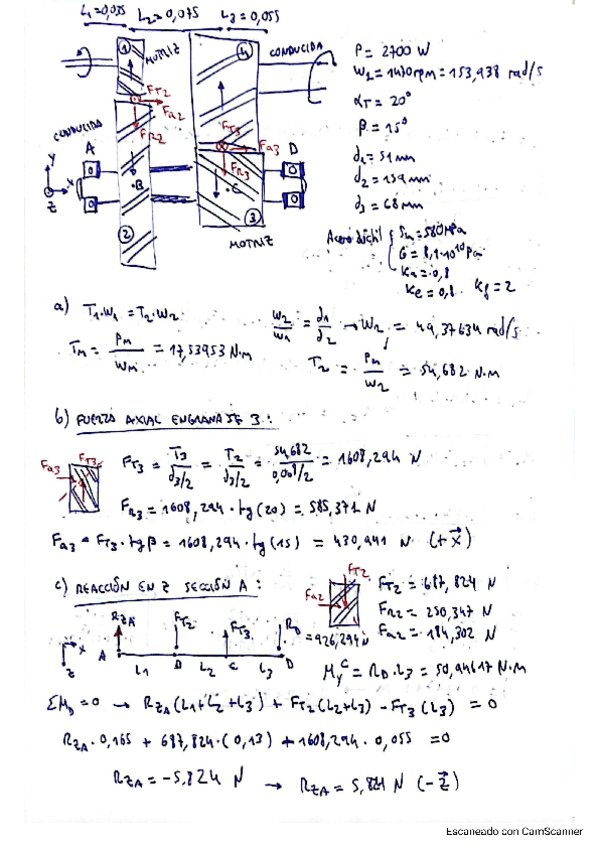 L₁=0,035 L₂=0,075 L₃=0,055
① MOTRIZ
④ CONDUCIDA
P = 2700 W
W₁ = 1470rpm = 153,938 rad/s
αT = 20°
β = 15°
d₁ = 51 mm
d₂ = 159 mm
d₃ = 68 mm
FT2
Fa2
FR2
FT3
Fa3
FR3
CONDUCIDA
A
D
y
x
z
·B
·C
②
③
MOTRIZ
Acero dúctil { Su = 580 MPa
G = 8,1·10¹⁰ Pa
Ka = 0,8
Ke = 0,8 Kf = 2
a) T₁·W₁ = T₂·W₂ W₂/W₁ = d₁/d₂ → W₂ = 49,37634 rad/s
Tm = Pm/Wm = 17,53953 N·m T₂ = Pm/W₂ = 54,682 N·m
b) FUERZA AXIAL ENGRANAJE 3:
Fa3 FT3 FT3 = T₃/(d₃/2) = T₂/(d₃/2) = 54,682/(0,068/2) = 1608,294 N
FR3 = 1608,294 · tg(20) = 585,371 N
Fa3 = FT3 · tg β = 1608,294 · tg(15) = 430,941 N (+x⃗)
c) REACCIÓN EN Z SECCIÓN A:
FT2
Fa2
FT2 = 687,824 N
FR2 = 250,347 N
Fa2 = 184,302 N
RZA FT2 FT3 RD = 926,294 N
x
z
A B C D
L₁ L₂ L₃
MyC = RD · L₃ = 50,94617 N·m
ΣMD = 0 → RZA (L₁+L₂+L₃) + FT2 (L₂+L₃) - FT3 (L₃) = 0
RZA · 0,165 + 687,824 · (0,13) + 1608,294 · 0,055 = 0
RZA = -5,824 N → RZA = 5,824 N (-z⃗)
Escaneado con CamScanner